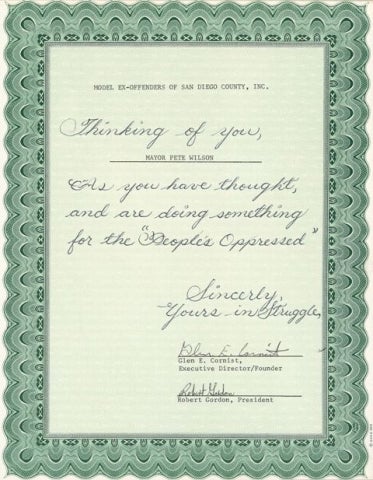 MODEL EX-OFFENDERS OF SAN DIEGO COUNTY, INC.
Thinking of you,
MAYOR PETE WILSON
As you have thought,
and are doing something
for the "People's Oppressed"
Sincerely,
Yours-in-Struggle,
Glen E. Cormist
Glen E. Cormist,
Executive Director/Founder
Robert Gordon
Robert Gordon, President